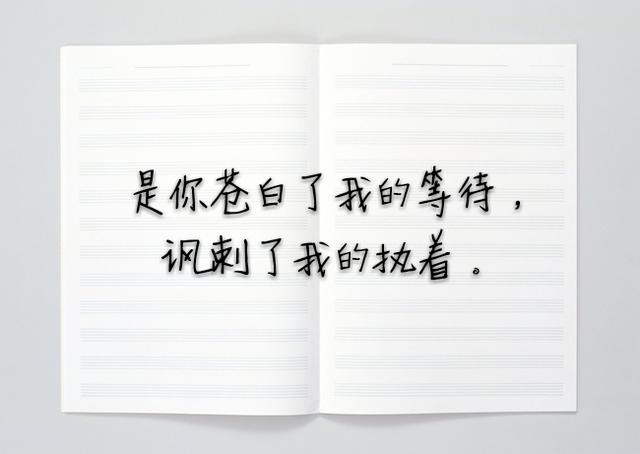 是你苍白了我的等待，
讽刺了我的执着。